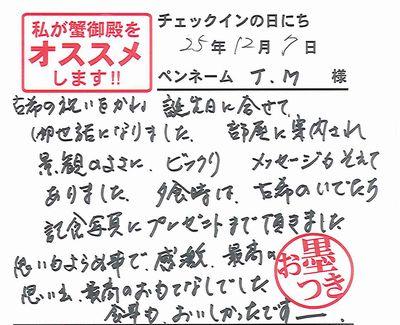 私が蟹御殿を
オススメ
します!!
チェックインの日にち
25年12月7日
ペンネーム T.M 様
古希の祝いをかね 誕生日に合せて
お世話になりました。 部屋に案内され
景観のよさに、ビックリ メッセージもそえて
ありました。夕食時に、古希のいでたち
記念写真にプレゼントまで頂きました
思いもようらぬ事で、感激、最高の
思い出、最高のおもてなしでした。
食事も、おいしかったですー。
お墨つき